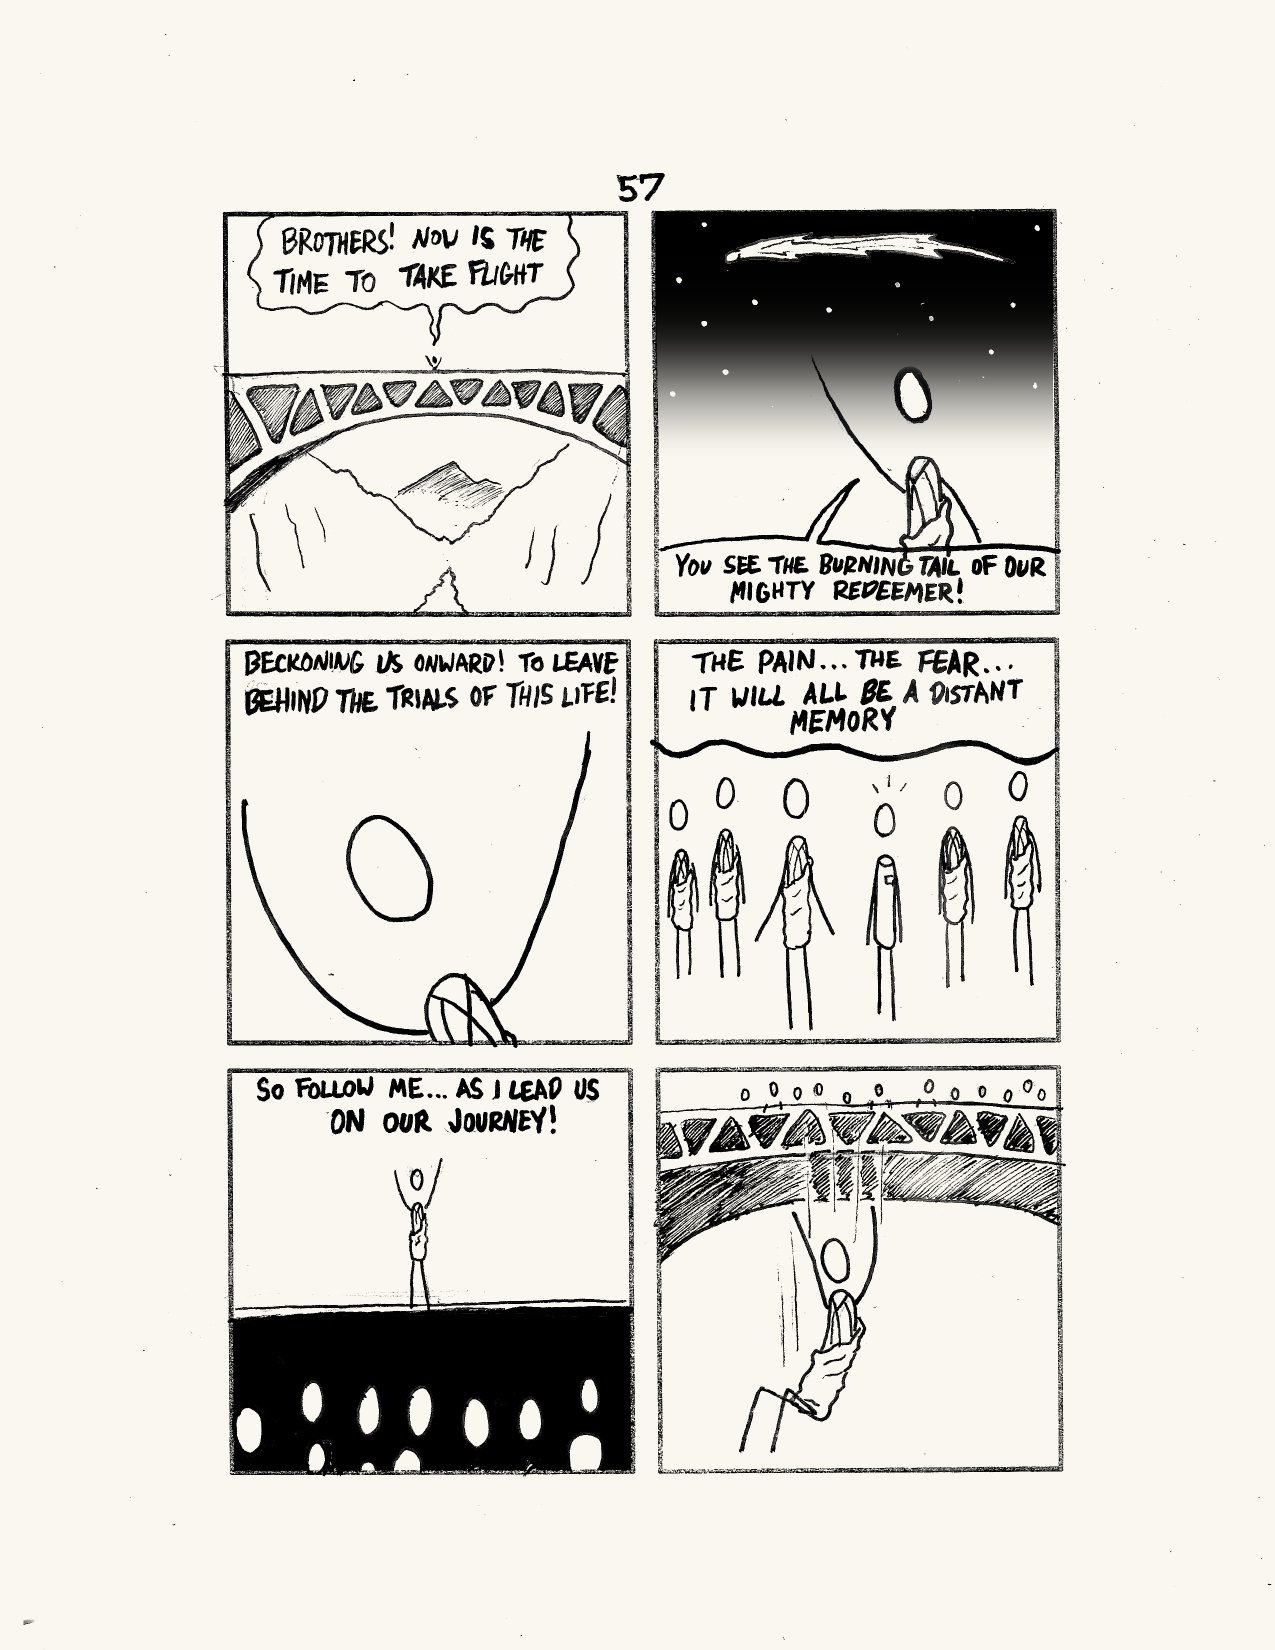 57
BROTHERS! NOW IS THE
TIME TO TAKE FLIGHT
YOU SEE THE BURNING TAIL OF OUR
MIGHTY REDEEMER!
BECKONING US ONWARD! TO LEAVE
BEHIND THE TRIALS OF THIS LIFE!
THE PAIN... THE FEAR...
IT WILL ALL BE A DISTANT
MEMORY
SO FOLLOW ME... AS I LEAD US
ON OUR JOURNEY!